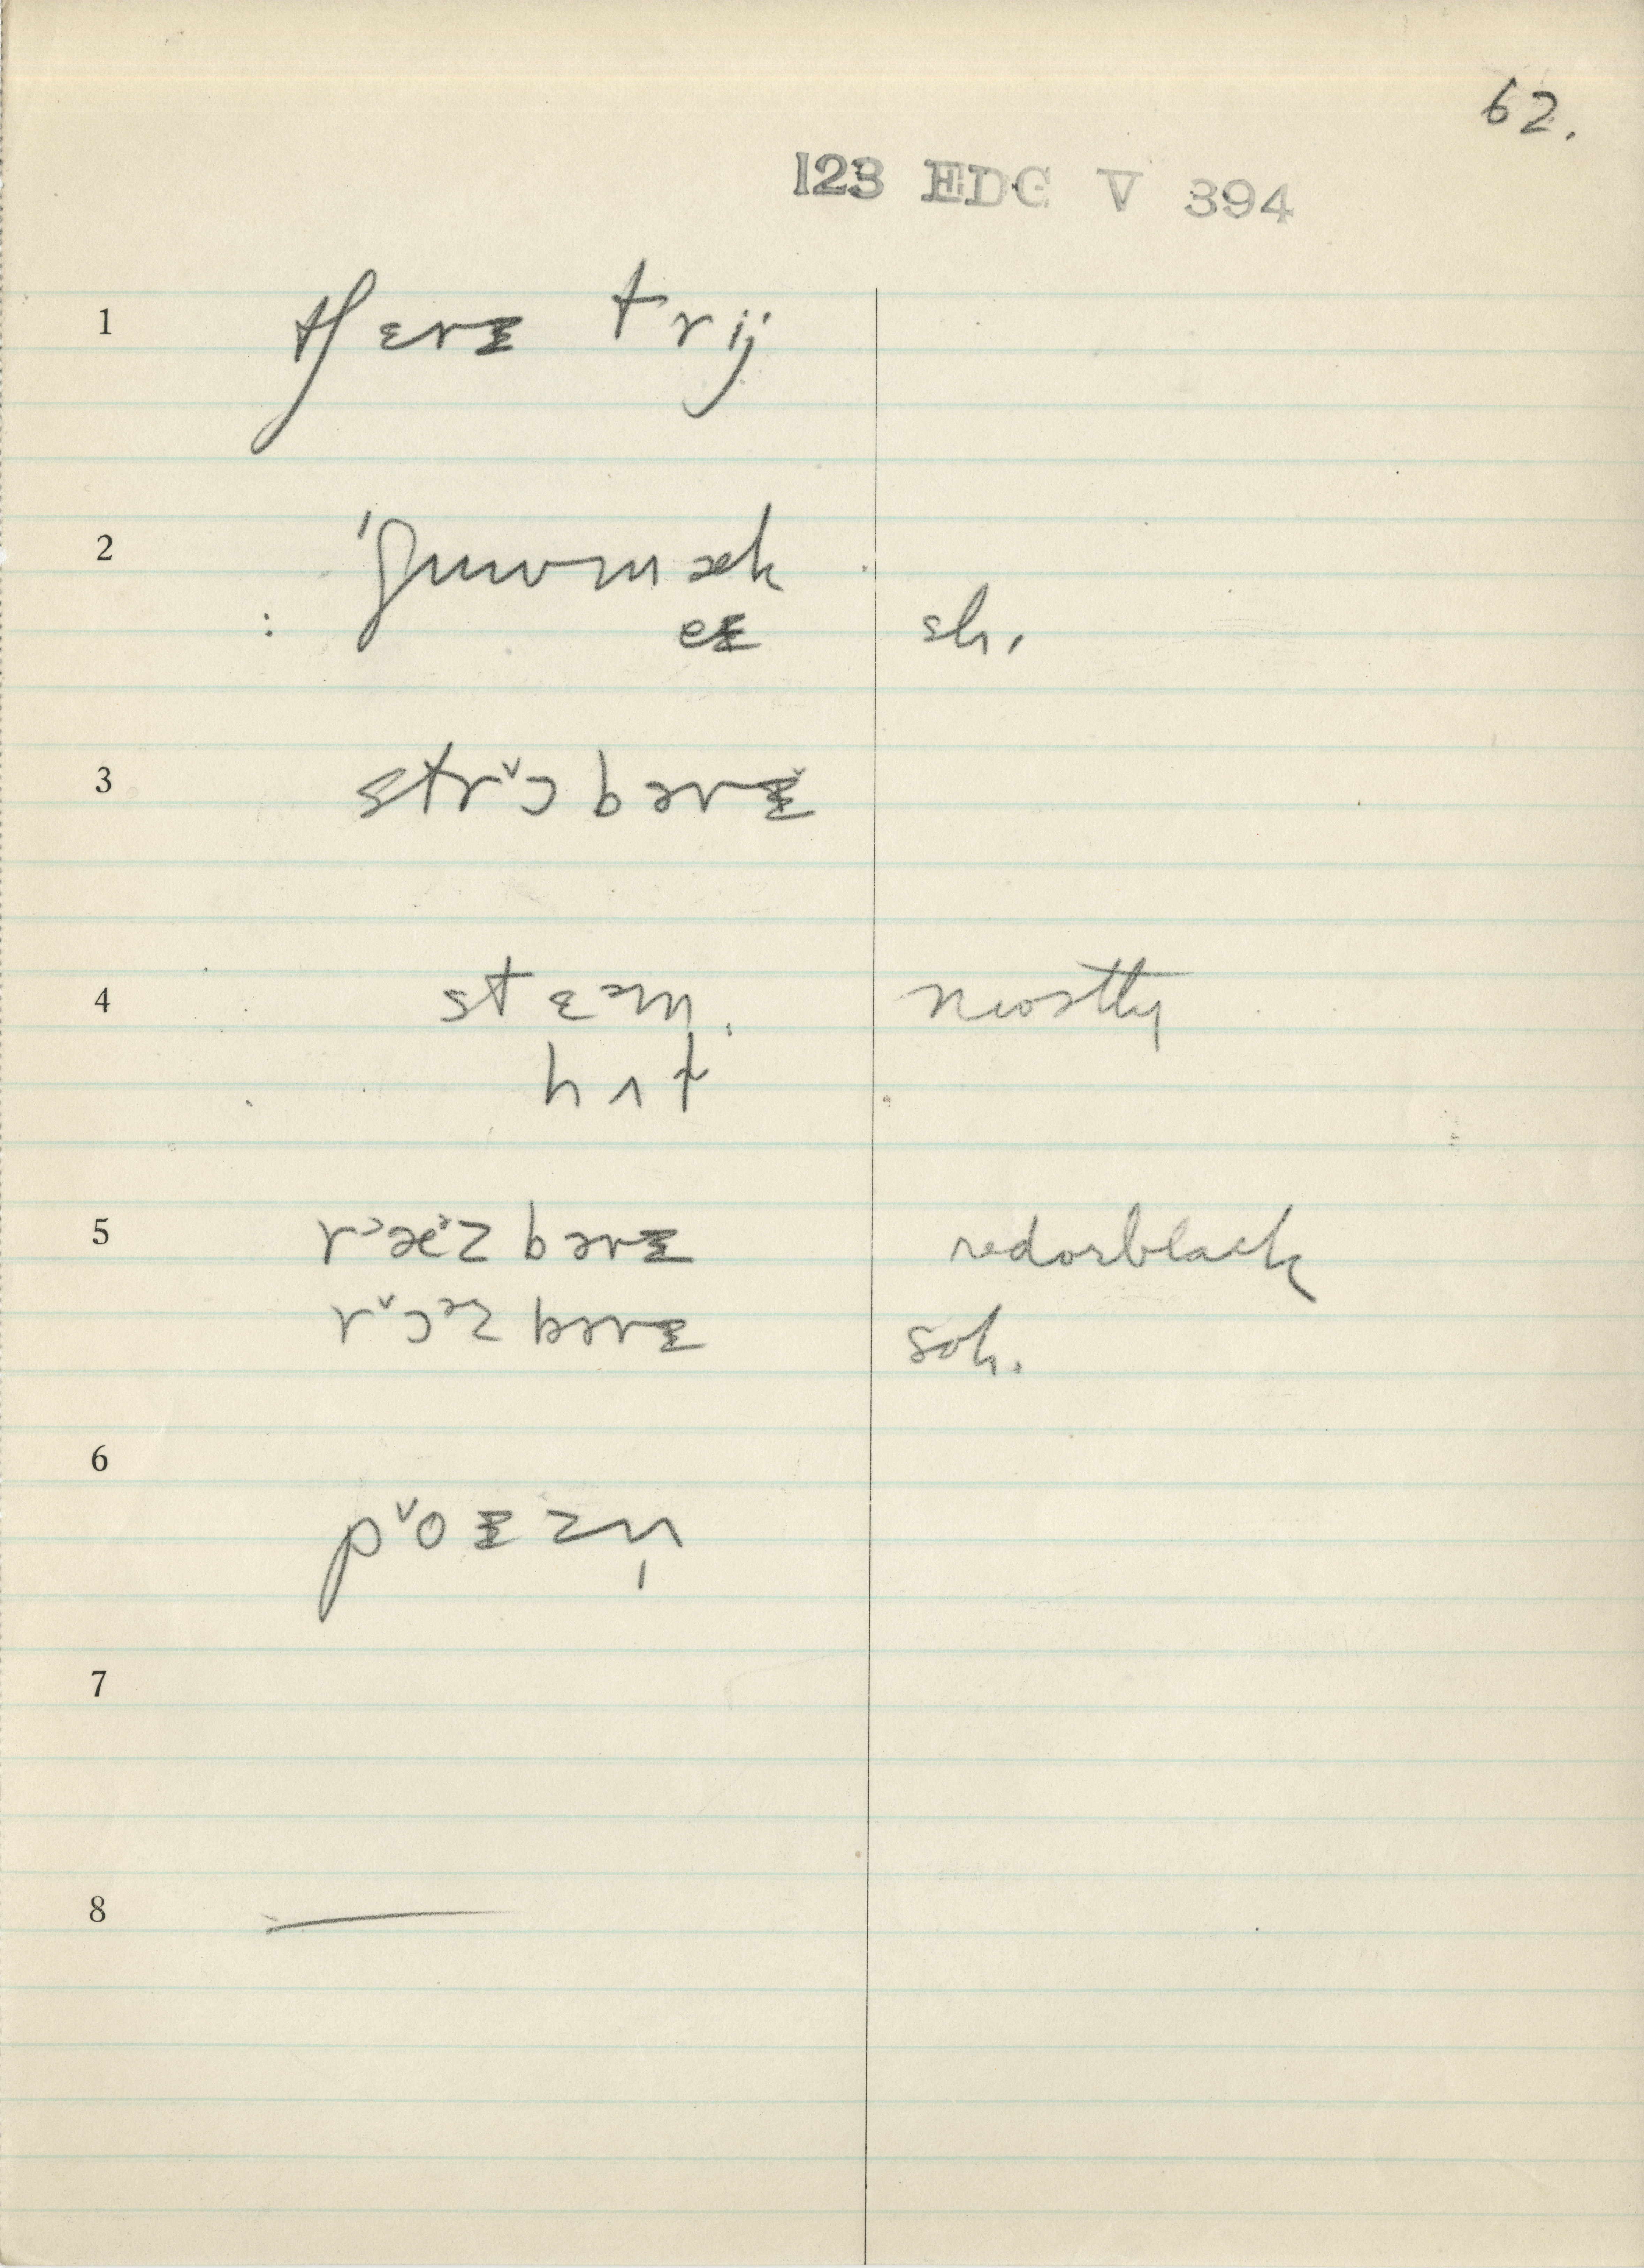 62.
123 EDG V 394
1 tʃɛrᵻ trij
2 ˈʃuwmæk
: eᵻ sh.
3 strˇɔbərᵻ̌
4 stɛəm. mostly
hʌt
5 r˃æ˃zbərᵻ red or black
rˇɔᵊzbərᵻ sch.
6 pˇoᵻzn̩
7
8 —